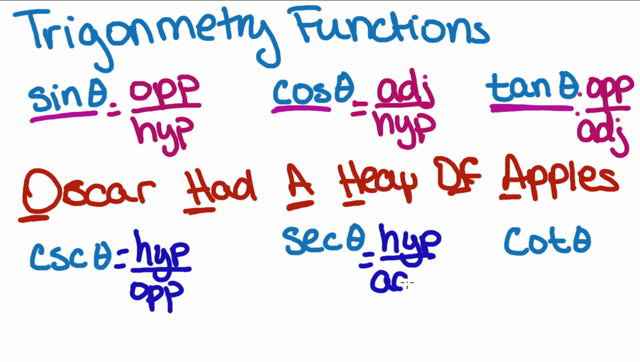 Trigonmetry Functions
sinθ = opp/hyp cosθ = adj/hyp tanθ = opp/adj
Oscar Had A Heap Of Apples
cscθ = hyp/opp secθ = hyp/ad cotθ